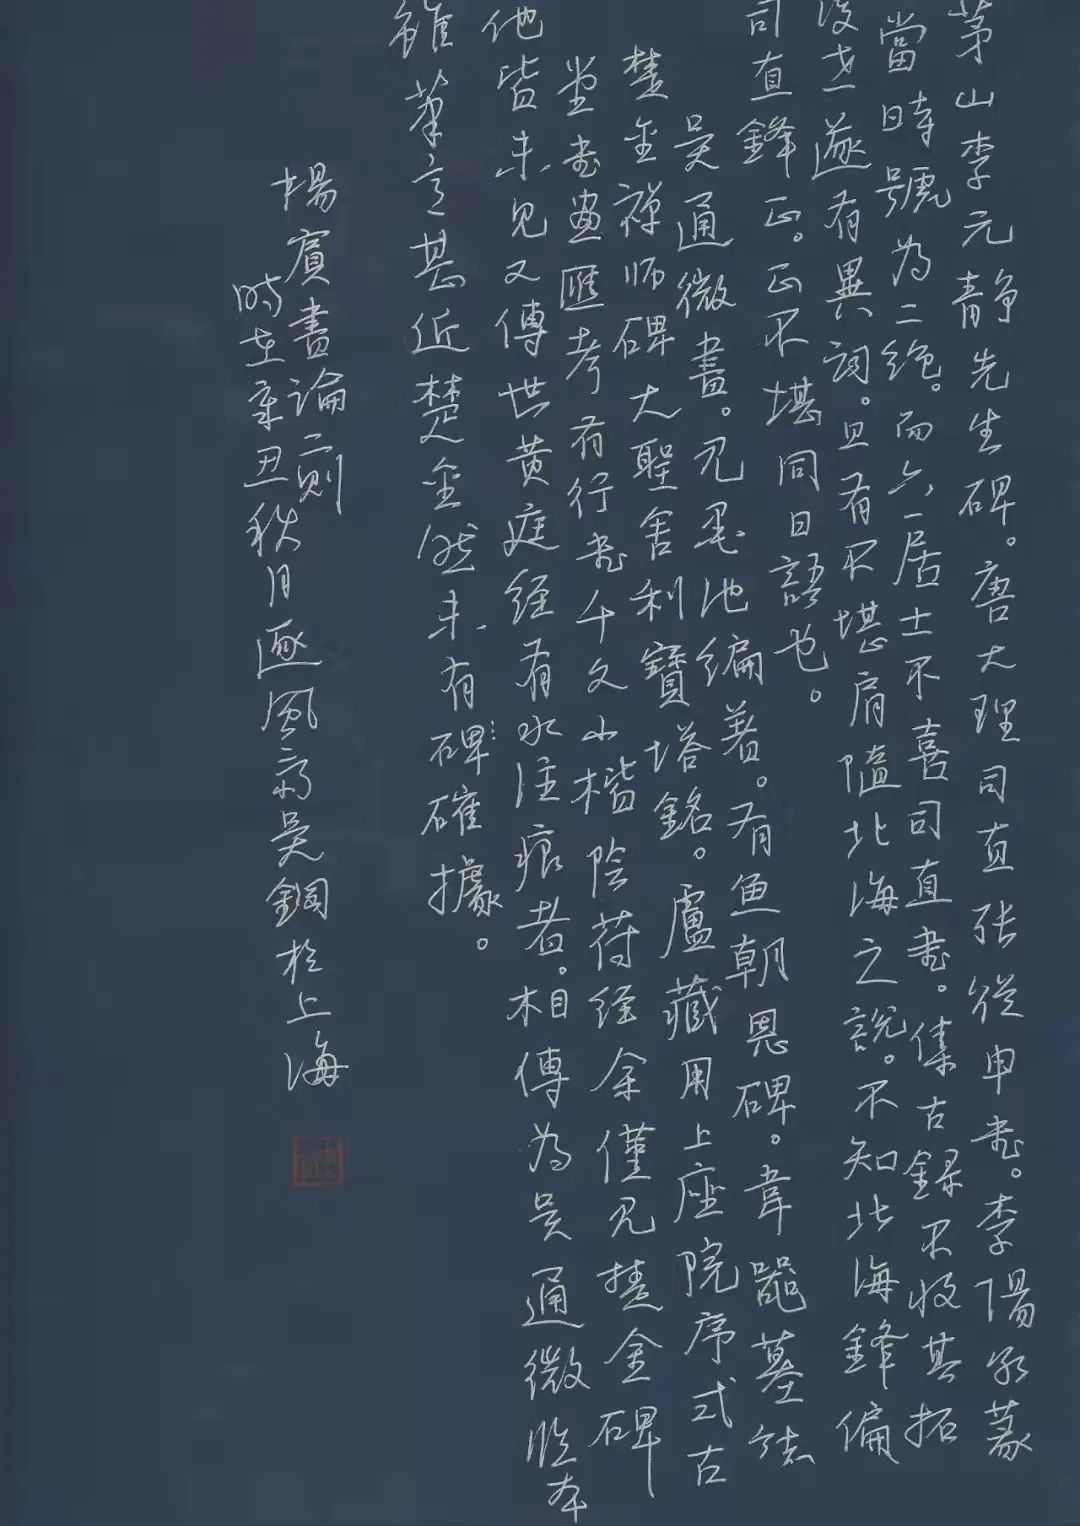 茅山李元靜先生碑。唐大理司直张從申书。李陽冰篆
當時號為二絕。而六一居士不喜司直书。集古録不收其拓
後世遂有異詞。且有不堪肩隨北海之說。不知北海鋒偏
司直鋒正。正不堪同日語也。
吴通微書。見墨池编著。有魚朝恩碑。韋墓誌
楚金禅师碑大聖舍利寶塔銘。盧藏用上座院序式古
堂书画匯考有行书千文小楷陰符经余僅見楚金碑
他皆未見又傳世黄庭经有水注痕者。相傳為吴通微临本
雖筆意甚近楚金然未有碑確據。
楊賓書論二则
時在辛丑秋月逐风斋吴鋼於上海